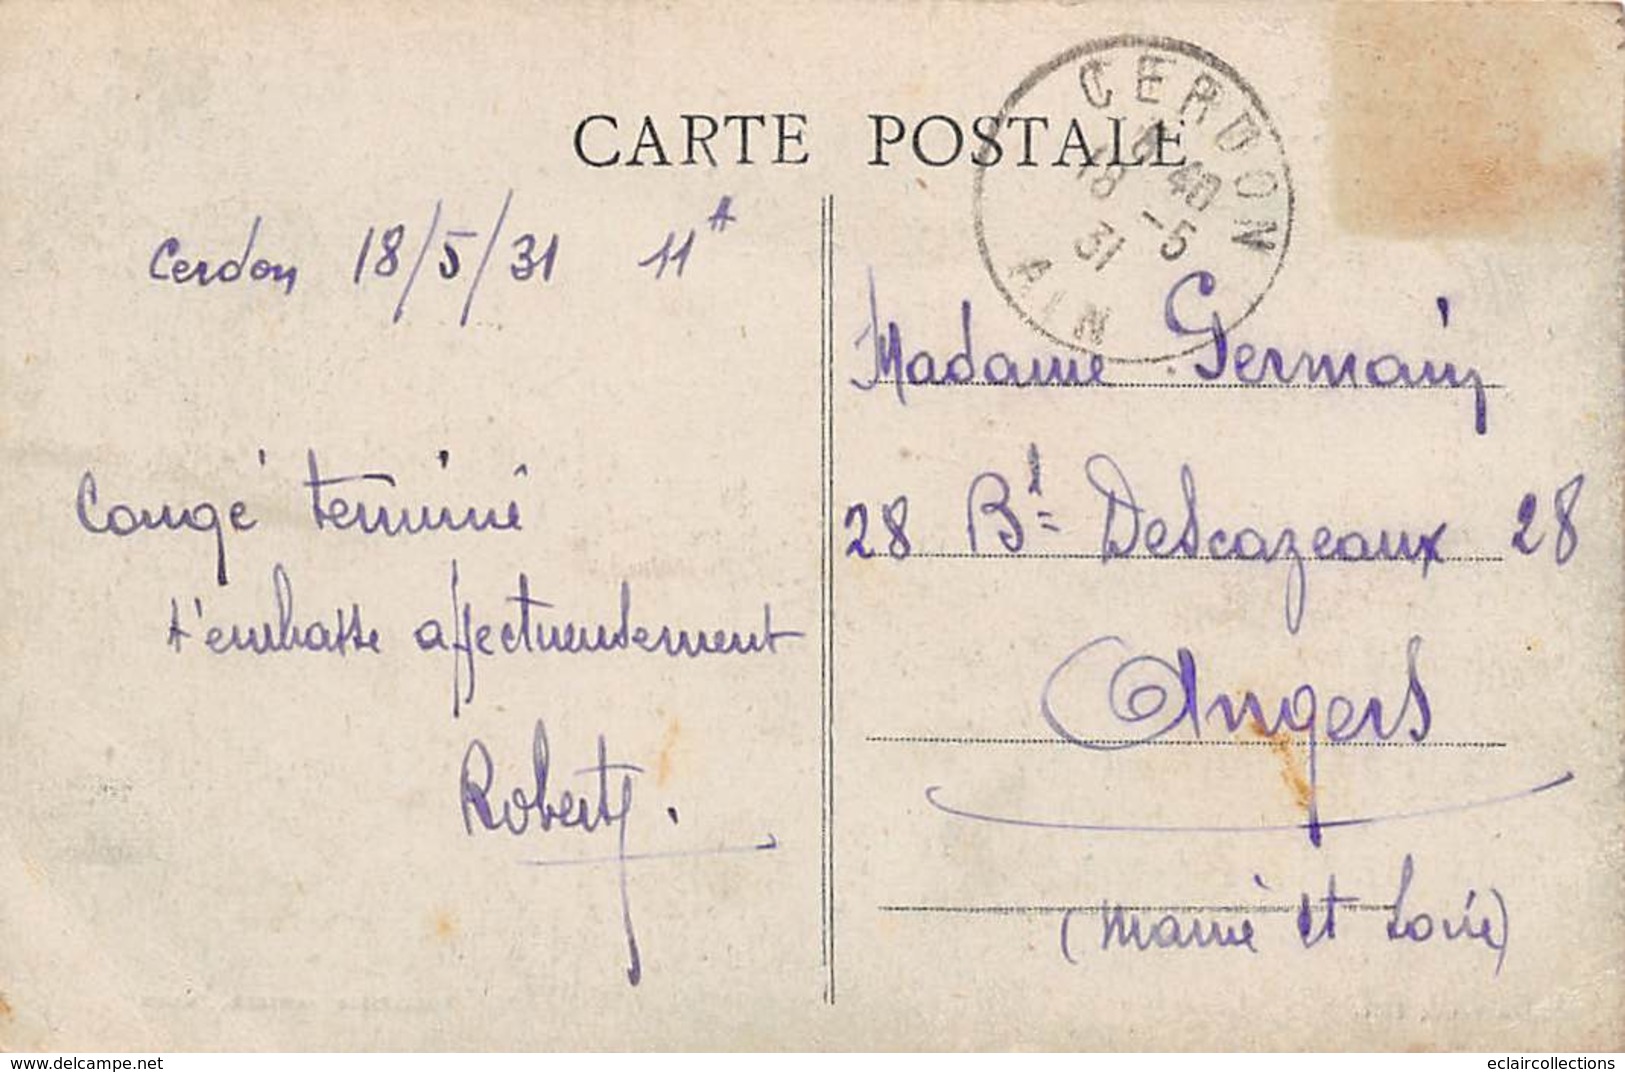 CARTE POSTALE
CERDON
18 -5
31
AIN
Cerdon 18/5/31 11H
Congé terminé
t'embrasse affectueusement
Robert.
Madame Germain
28 Bd Descazeaux 28
Angers
(Maine et Loire)
www.delcampe.net
eclaircollections